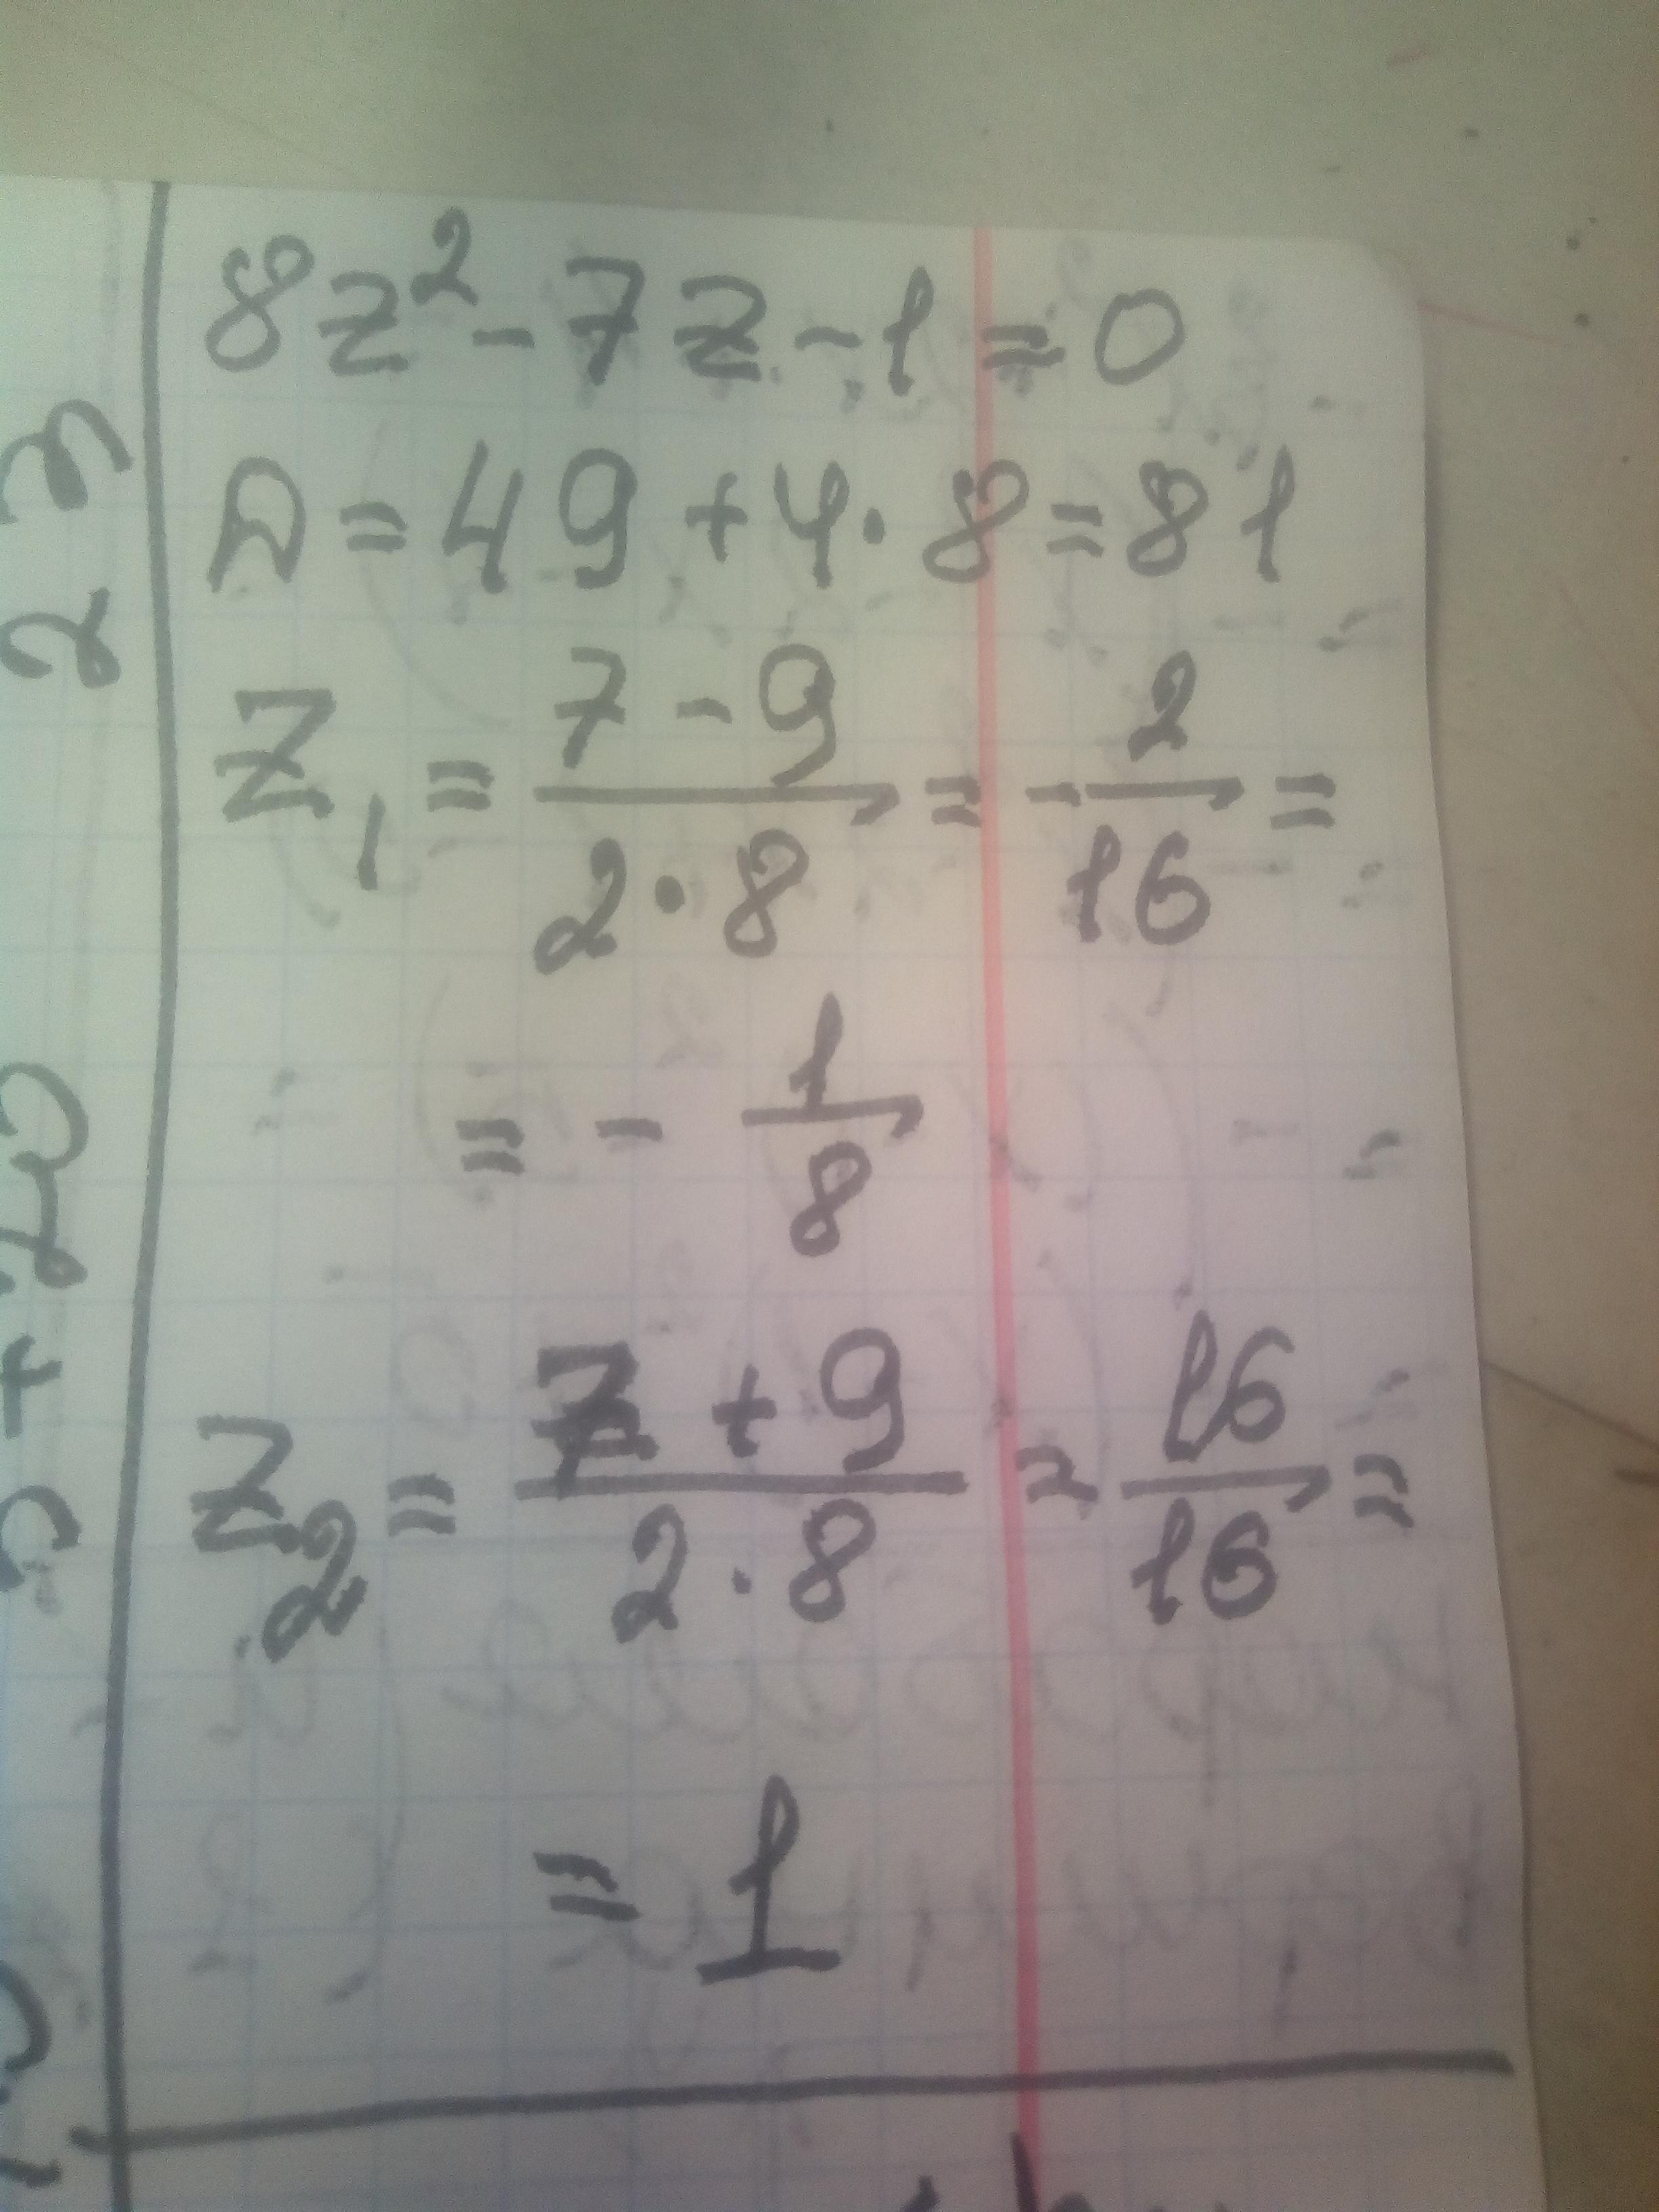 8z² - 7z - 1 = 0
D = 49 + 4 · 8 = 81
z₁ = (7 - 9)/(2 · 8) = -2/16 =
= - 1/8
z₂ = (7 + 9)/(2 · 8) = 16/16 =
= 1